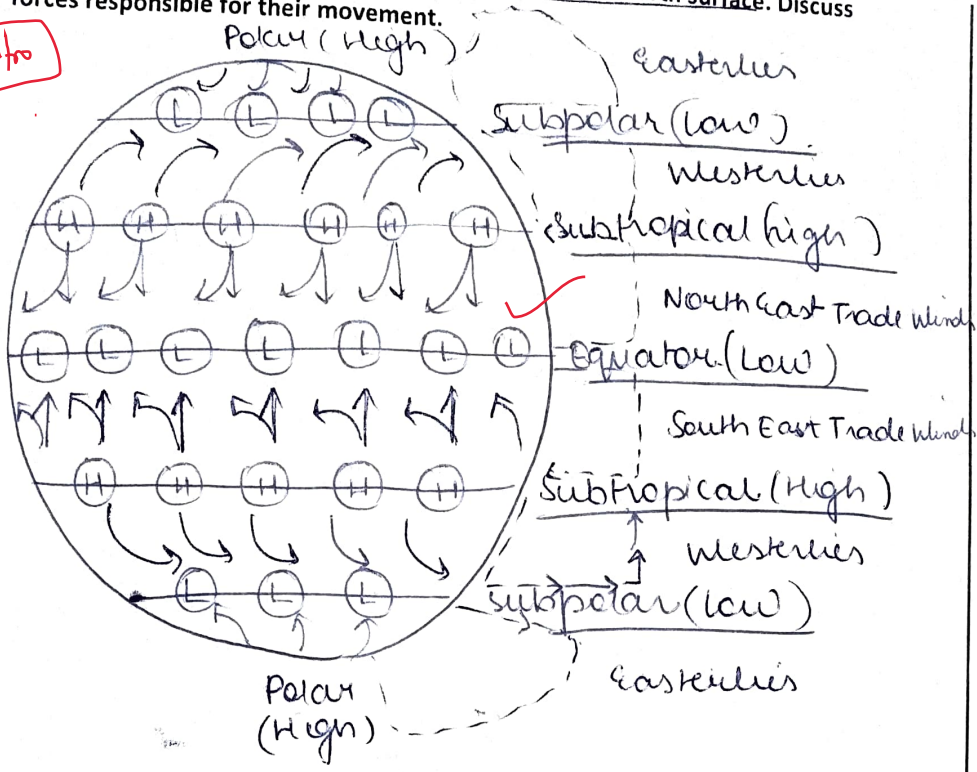 forces responsible for their movement.
surface. Discuss
Polar (High)
Easterlies
L L L L
Subpolar (Low)
Westerlies
H H H H H H
Subtropical (high)
North East Trade Winds
L L L L L L L
Equator (Low)
South East Trade Winds
H H H H H
SubTropical (High)
Westerlies
L L L
Subpolar (Low)
Easterlies
Polar
(High)